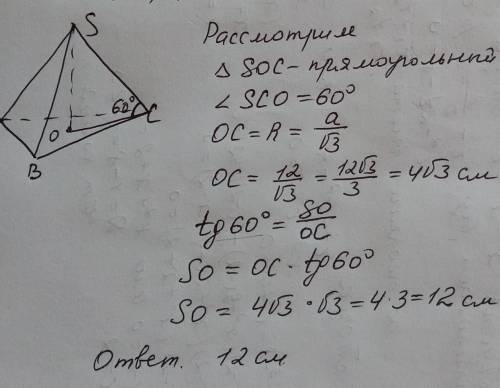 S
60°
O
C
B
Рассмотрим
△ SOC - прямоугольный
∠ SCO = 60°
OC = R = a/√3
OC = 12/√3 = 12√3/3 = 4√3 см
tg60° = SO/OC
SO = OC · tg60°
SO = 4√3 · √3 = 4·3 = 12 см
Ответ. 12 см